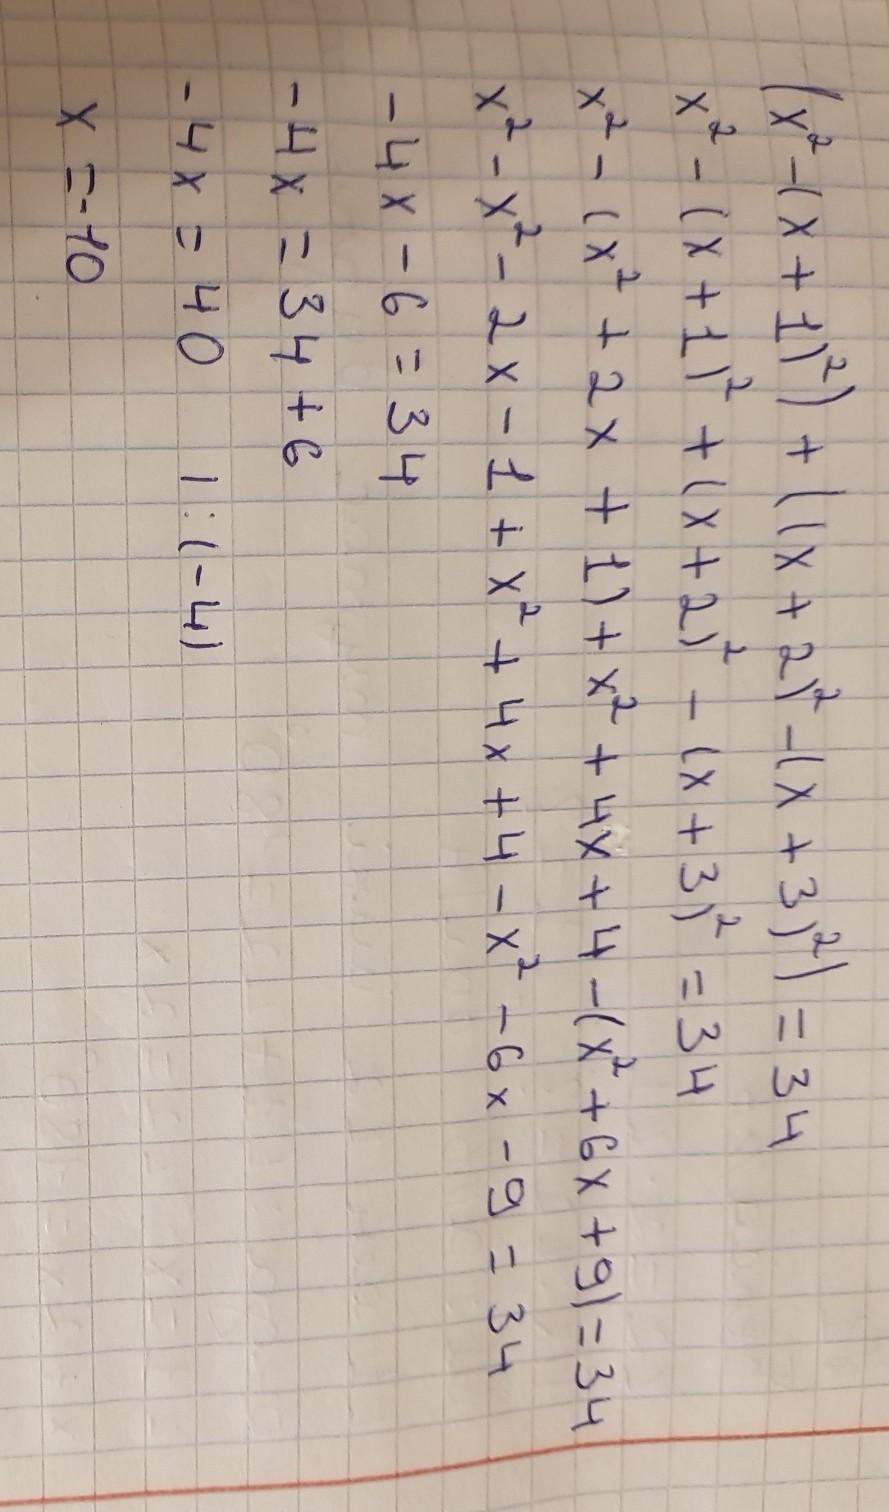 (x² - (x + 1)²) + ((x + 2)² - (x + 3)²) = 34
x² - (x + 1)² + (x + 2)² - (x + 3)² = 34
x² - (x² + 2x + 1) + x² + 4x + 4 - (x² + 6x + 9) = 34
x² - x² - 2x - 1 + x² + 4x + 4 - x² - 6x - 9 = 34
- 4x - 6 = 34
- 4x = 34 + 6
- 4x = 40 | : (-4)
x = -10